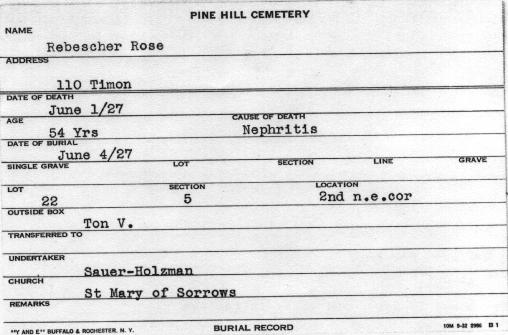 PINE HILL CEMETERY
NAME
Rebescher Rose
ADDRESS
110 Timon
DATE OF DEATH
June 1/27
AGE CAUSE OF DEATH
54 Yrs Nephritis
DATE OF BURIAL
June 4/27
SINGLE GRAVE LOT SECTION LINE GRAVE
LOT SECTION LOCATION
22 5 2nd n.e.cor
OUTSIDE BOX
Ton V.
TRANSFERRED TO
UNDERTAKER
Sauer-Holzman
CHURCH
St Mary of Sorrows
REMARKS
"Y AND E" BUFFALO & ROCHESTER. N. Y. BURIAL RECORD 10M 9-32 2986 B 1